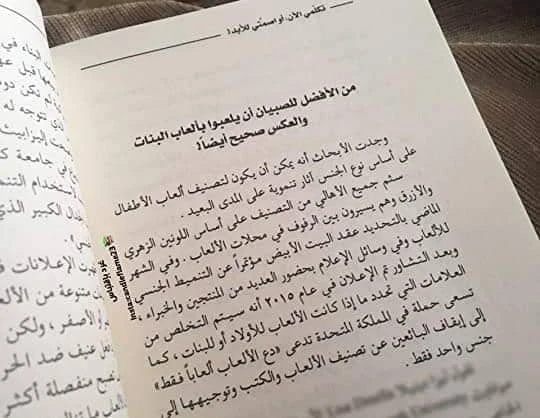 تكلمي الآن، أو اصمتي للأبد!
من الأفضل للصبيان أن يلعبوا بألعاب البنات
والعكس صحيح أيضاً!
وجدت الأبحاث أنه يمكن أن يكون لتصنيف ألعاب الأطفال
على أساس نوع الجنس آثار تنموية على المدى البعيد.
سئم جميع الأهالي من التصنيف على أساس اللونين الزهري
والأزرق وهم يسيرون بين الرفوف في محلات الألعاب. وفي الشهر
الماضي بالتحديد عقد البيت الأبيض مؤتمراً عن التنميط الجنسي
للألعاب وفي وسائل الإعلام بحضور العديد من المنتجين والخبراء،
وبعد التشاور تم الإعلان في عام ٢٠١٥ أنه سيتم التخلص من
العلامات التي تحدد ما إذا كانت الألعاب للأولاد أو للبنات، كما
تسعى حملة في المملكة المتحدة تدعى «دع الألعاب ألعاباً فقط»
إلى إيقاف البائعين عن تصنيف الألعاب والكتب وتوجيهها إلى
جنس واحد فقط.
البناء في
قبل
لم تكن
توجه له
إليزابيث
في جامعة
استخدام
الكبير الذي
الإعلانات
متنوعة من
أو الأصفر، ولكن
عنيف ضد
منفصلة أكثر